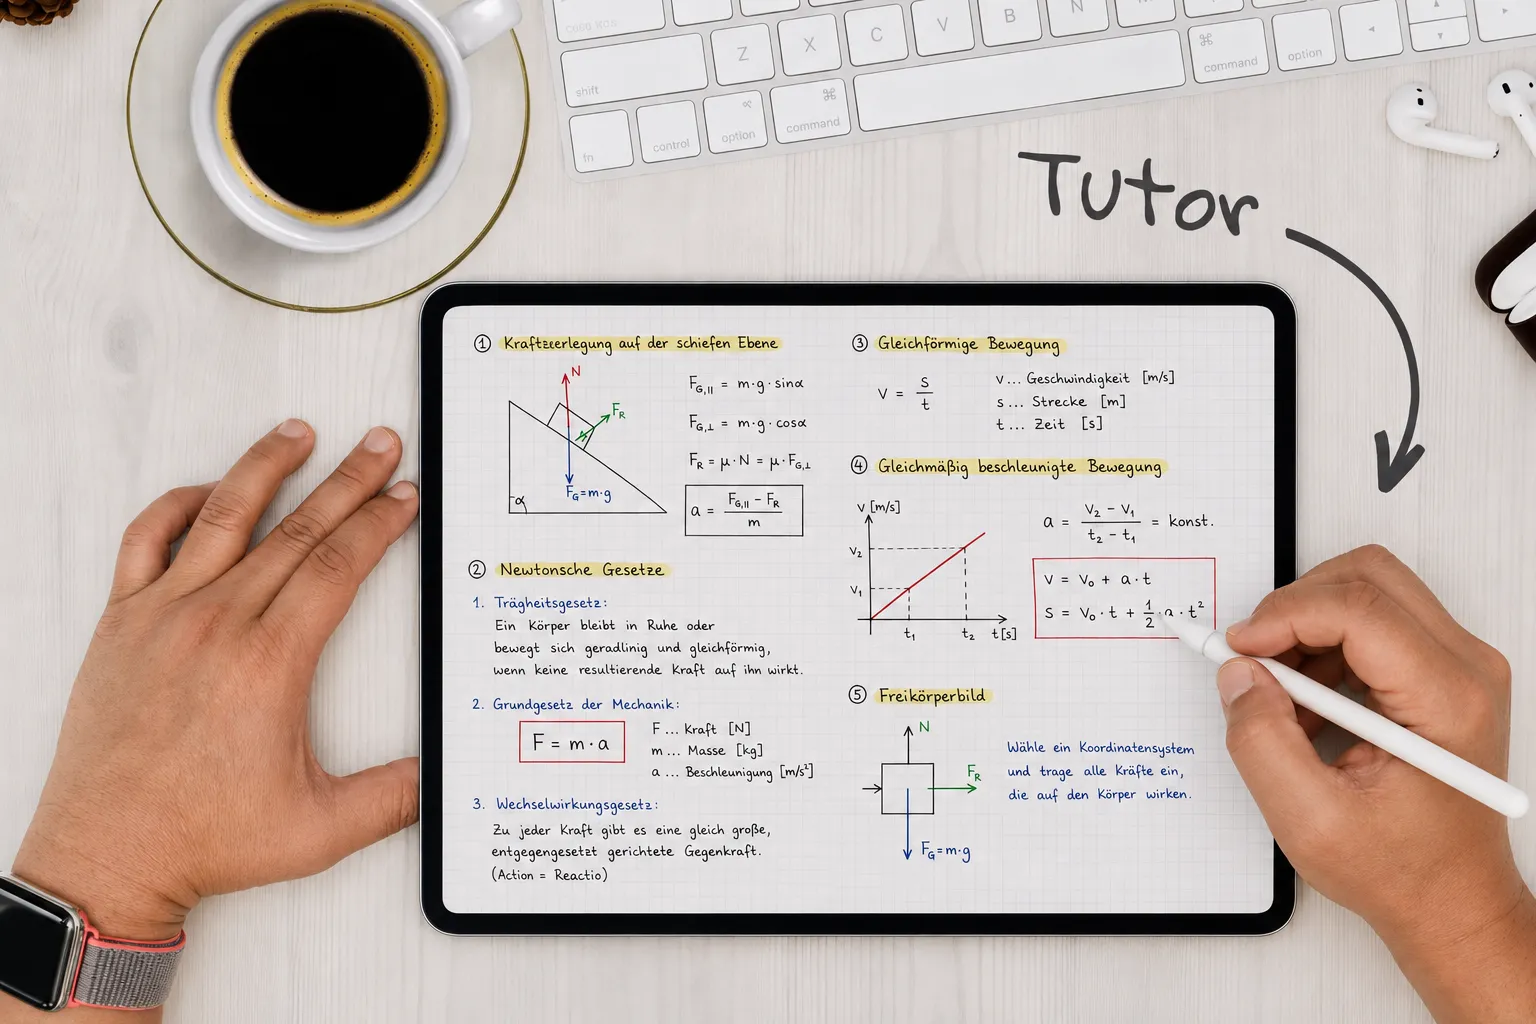 Z X C V B N
shift
command
option
fn
control
option
command
Tutor
① Kraftzeerlegung auf der schiefen Ebene
N
F_R
F_G=m·g
α
F_G,|| = m·g·sinα
F_G,⊥ = m·g·cosα
F_R = μ·N = μ·F_G,⊥
a = (F_G,|| - F_R)/m
② Newtonsche Gesetze
1. Trägheitsgesetz:
Ein Körper bleibt in Ruhe oder
bewegt sich geradlinig und gleichförmig,
wenn keine resultierende Kraft auf ihn wirkt.
2. Grundgesetz der Mechanik:
F = m·a
F ... Kraft [N]
m ... Masse [kg]
a ... Beschleunigung [m/s²]
3. Wechselwirkungsgesetz:
Zu jeder Kraft gibt es eine gleich große,
entgegengesetzt gerichtete Gegenkraft.
(Action = Reactio)
③ Gleichförmige Bewegung
v = s/t
v... Geschwindigkeit [m/s]
s ... Strecke [m]
t ... Zeit [s]
④ Gleichmäßig beschleunigte Bewegung
v [m/s]
v₂
v₁
t₁ t₂ t[s]
a = (v₂ - v₁)/(t₂ - t₁) = konst.
v = v₀ + a·t
s = v₀·t + 1/2·a·t²
⑤ Freikörperbild
N
F_R
F_G=m·g
Wähle ein Koordinatensystem
und trage alle Kräfte ein,
die auf den Körper wirken.